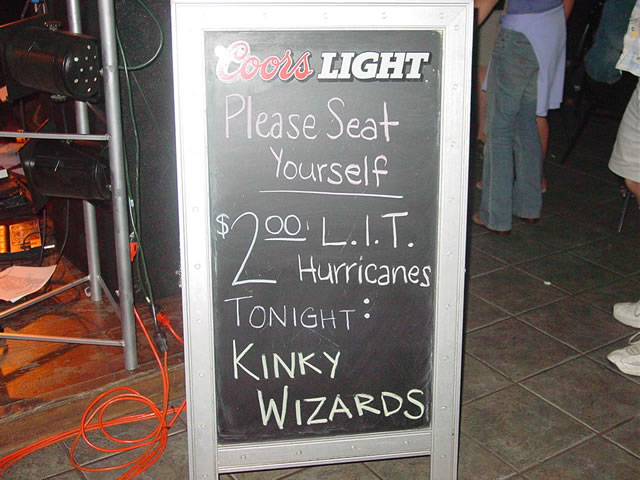 Coors LIGHT
Please Seat
Yourself
$2.00 L.I.T.
Hurricanes
TONIGHT:
KINKY
WIZARDS